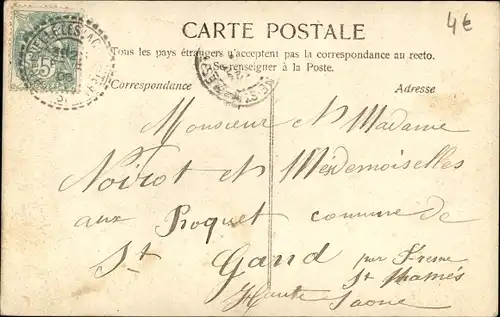 4€
CARTE POSTALE
Tous les pays étrangers n'acceptent pas la correspondance au recto.
Se renseigner à la Poste.
Correspondance
Adresse
Monsieur et Madame
Noirot et Mesdemoiselles
aux Proquet commune de
St Gand par Fresne
St Mamès
Haute Saone